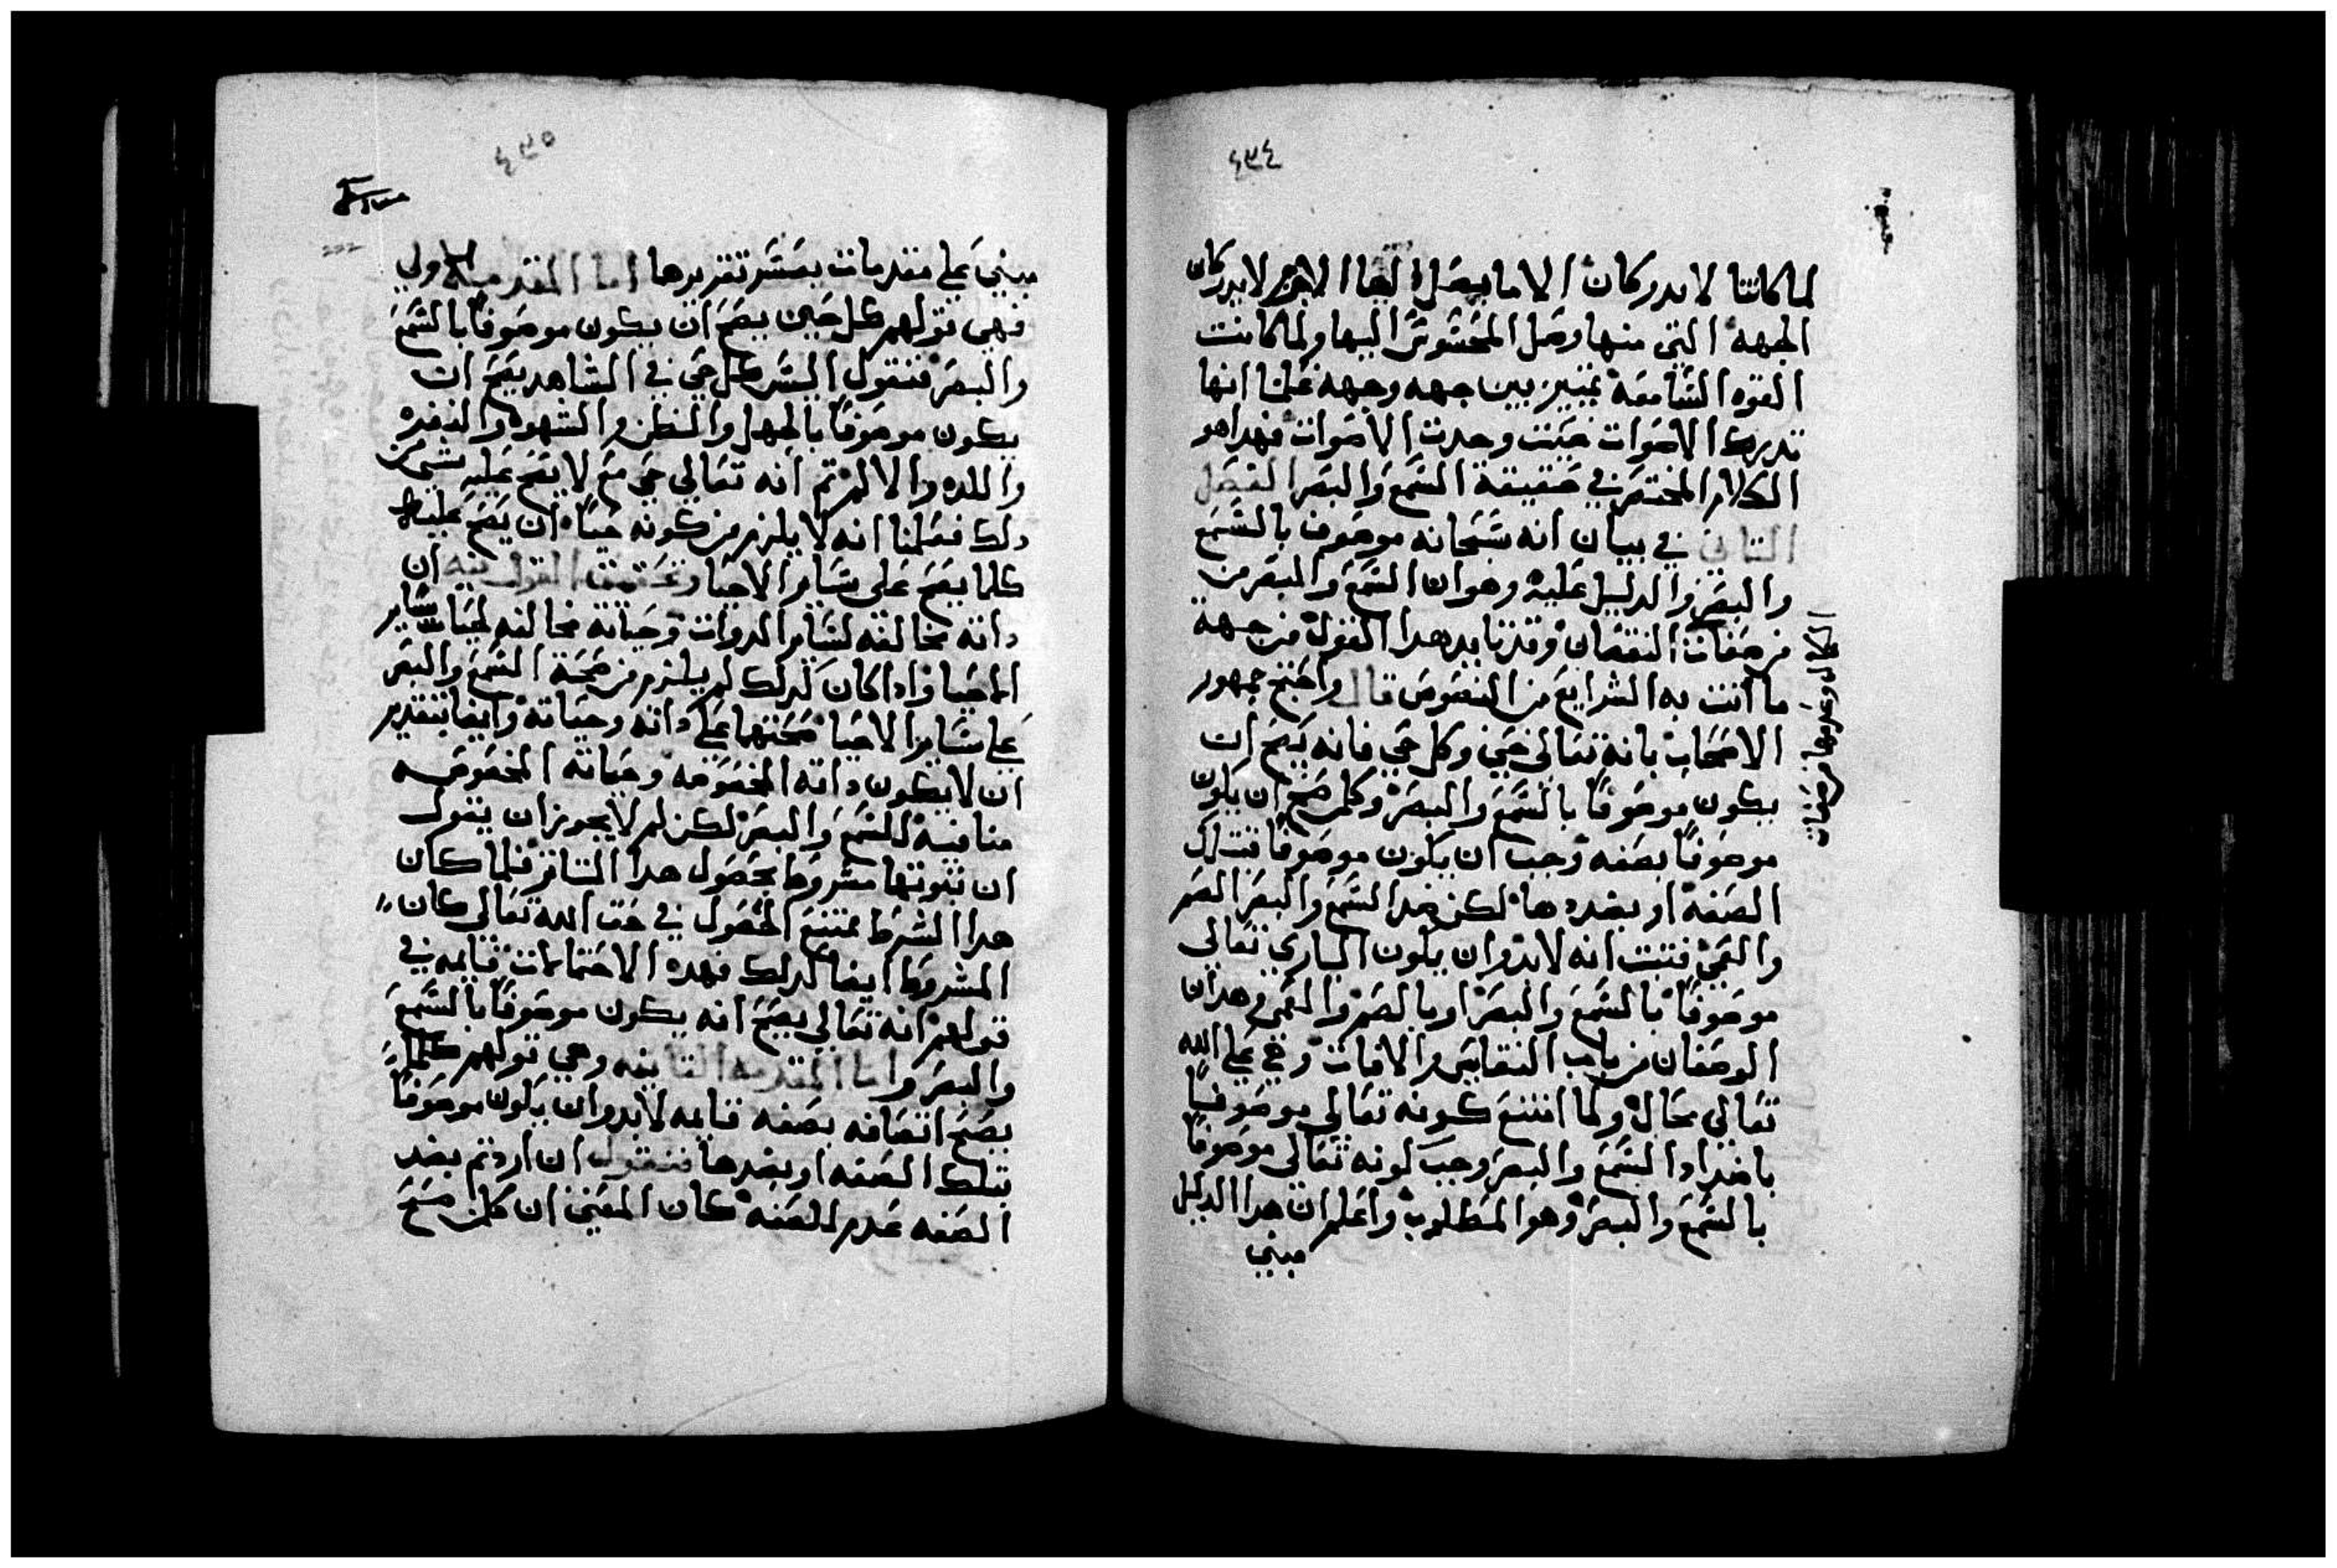 ٤٣٤
لما كانتا لا يدركان الا ما يصل اليها لا جرم لا يدركان
الجهه التي منها وصل المحسوس اليها ولما كانت
القوه السامعه تميز بين جهه وجهه علمنا انها
تدرك الاصوات حيث وجدت الاصوات فهدا هو
الكلام المختصر في حقيقة السمع والبصر الفصل
الثاني في بيان انه سبحانه موصوف بالسمع
والبصر والدليل عليه وهو ان السمع والبصر من
الكمال وعدمهما من صفات
من صفات النقصان وقد تايد هدا القول من جهة
ما أتت به الشرايع من النصوص قال واحتج جمهور
الاصحاب بانه تعالى حي وكل حي فانه يصح ان
يكون موصوفًا بالسمع والبصر وكلمن صح ان يكون
موصوفًا بصفه وجب ان يكون موصوفًا بتلك
الصفه او بضدها لكن ضد السمع والبصر الصم
والعمى فثبت انه لا بد وان يكون الباري تعالى
موصوفًا بالسمع والبصر او بالصم والعمى وهدان
الوصفان من باب النقايص والافات وهي على الله
تعالى محال ولما امتنع كونه تعالى موصوفًا
باضداد السمع والبصر وجب كونه تعالى موصوفًا
بالسمع والبصر وهو المطلوب واعلم ان هدا الدليل
مبني
٤٣٥
مبني على مقدمات يعسر تقريرها اما المقدمة الاولي
فهي قولهم كل حي يصح ان يكون موصوفًا بالسمع
والبصر فنقول اليس كل حي في الشاهد يصح ان
يكون موصوفًا بالجهل والظن والشهوه والنفره
واللده والالم ثم انه تعالي حي مع لا يصح عليه شي من
دلك فعلمنا انه لا يلزم من كونه حيًا ان يصح عليه
كلما يصح على ساير الاحيا وتحقيق القول فيه ان
داته مخالفه لساير الدوات وحياته مخالفه لحياة ساير
الاحيا وادا كان كدلك لم يلزم من صحة السمع والبصر
على ساير الاحيا صحتها على داته وحياته وايضا بتقدير
ان لا يكون داته المخصوصه وحياته المخصوصه
منافيه للسمع والبصر لكن لم لا يجوز ان يقول
ان ثبوتها مشروط بحصول هدا التاثر فلما كان
هدا الشرط ممتنع الحصول في حق الله تعالى كان
المشروط ايضا كدلك فهده الاحتمالات قايمه في
قولهم انه تعالي يصح انه يكون موصوفًا بالسمع
والبصر واما المقدمه الثانيه وهي قولهم كلما
يصح اتصافه بصفه قايمه لابد وان يكون موصوفًا
بتلك الصفه او بضدها فنقول ان اردتم بضد
الصفه عدم الصفه كان المعني ان كلمن صح